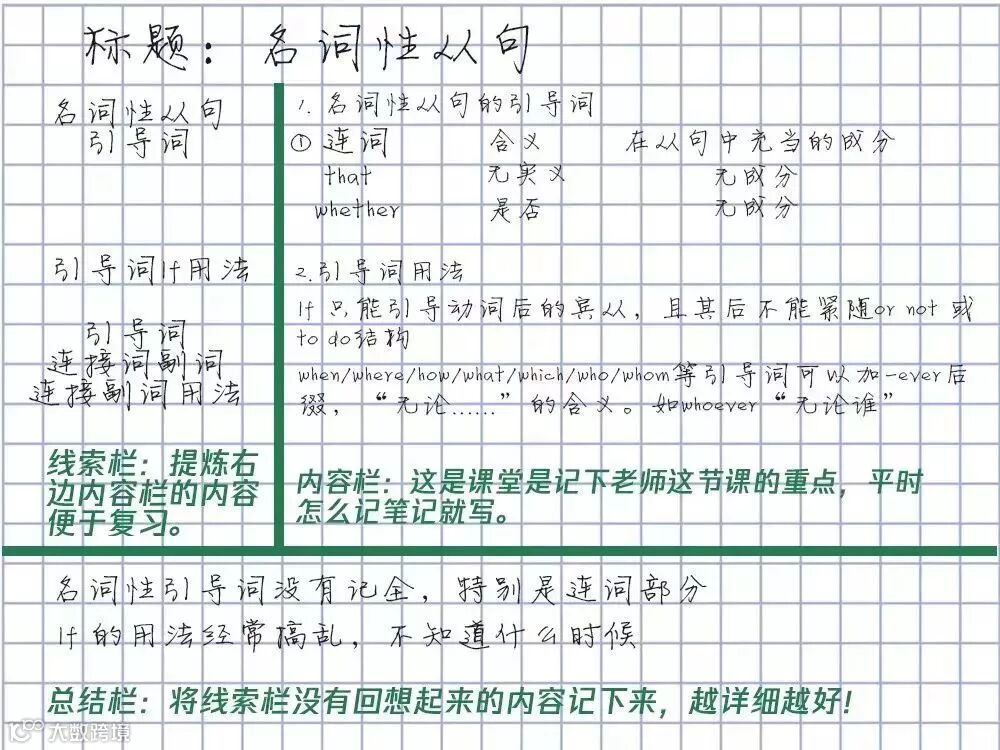 标题：名词性从句
名词性从句
引导词
1.名词性从句的引导词
①连词 含义 在从句中充当的成分
that 无实义 无成分
whether 是否 无成分
引导词If用法
引导词
连接词副词
连接副词用法
2.引导词用法
If只能引导动词后的宾从，且其后不能紧随or not或
to do结构
when/where/how/what/which/who/whom等引导词可以加-ever后
缀，“无论……”的含义。如whoever“无论谁”
线索栏：提炼右
边内容栏的内容
便于复习。
内容栏：这是课堂是记下老师这节课的重点，平时
怎么记笔记就写。
名词性引导词没有记全，特别是连词部分
If的用法经常搞乱，不知道什么时候
总结栏：将线索栏没有回想起来的内容记下来，越详细越好！
大数跨境